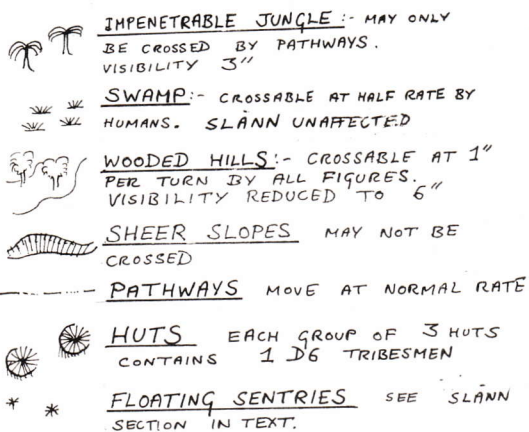 IMPENETRABLE JUNGLE :- MAY ONLY
BE CROSSED BY PATHWAYS.
VISIBILITY 3"
SWAMP:- CROSSABLE AT HALF RATE BY
HUMANS. SLÂNN UNAFFECTED
WOODED HILLS:- CROSSABLE AT 1"
PER TURN BY ALL FIGURES.
VISIBILITY REDUCED TO 6"
SHEER SLOPES MAY NOT BE
CROSSED
PATHWAYS MOVE AT NORMAL RATE
HUTS EACH GROUP OF 3 HUTS
CONTAINS 1 D6 TRIBESMEN
FLOATING SENTRIES SEE SLÂNN
SECTION IN TEXT.